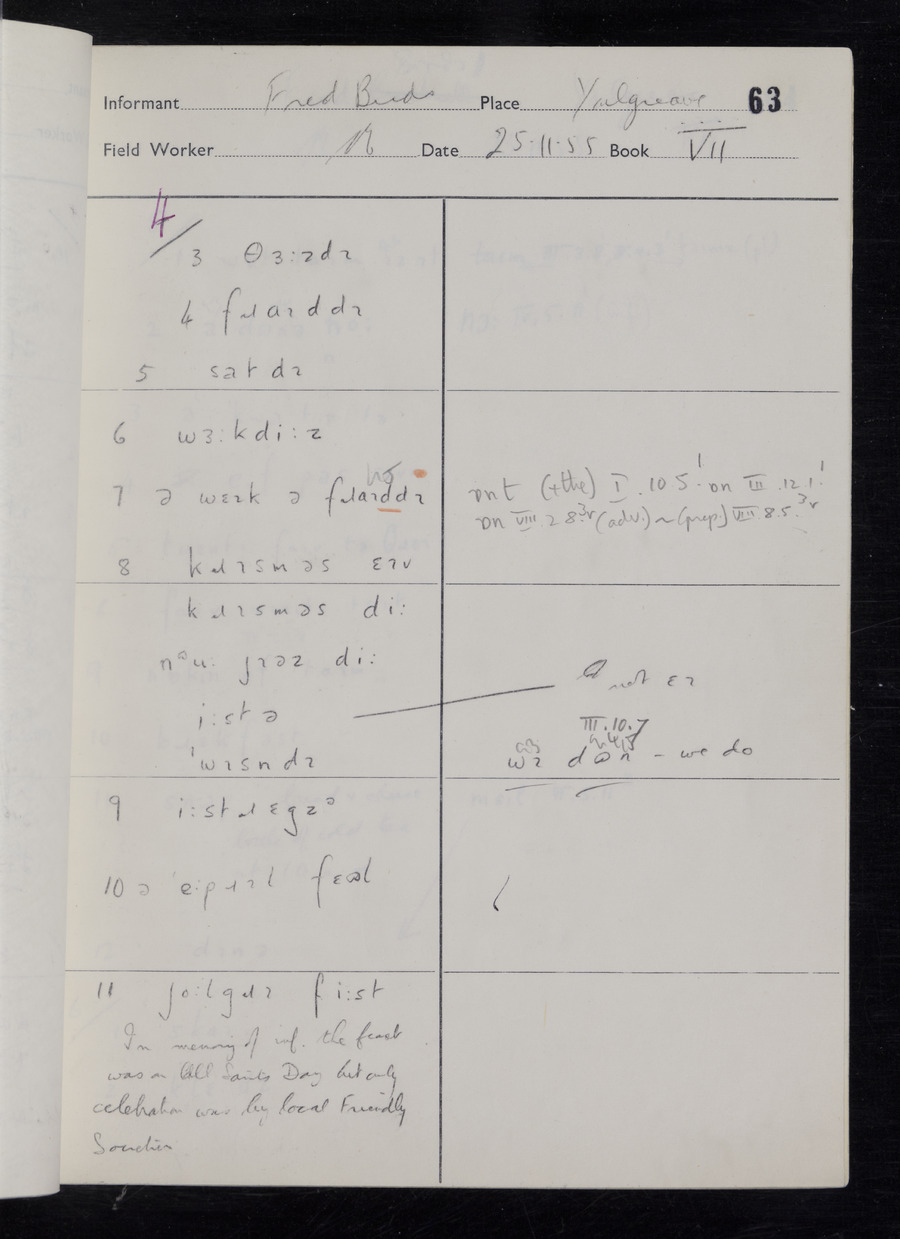 Informant Fred Birds Place Yulgreave 63
Field Worker Date 25.11.55 Book VII
4/
3 θɜ:zdɪ
4 fɹaɪddɪ
5 satdɪ
6 wɜ:kdi:z
7 ə weɪk ə fɹaɪddɪ
ɒnt (+the) I.10 5! ɒn III.12.1!
ɒn VIII 2 8.3r (adv.) ~ (prep.) VIII 8.5.3r
8 kɹɪsməs ɛɪv
kɹɪsməs di:
nᵊu: jɪəz di:
i:stə
not ɛɪ
III.10.7
ˈwɪsndɪ
wɪ - we do
9 i:stɹɛgzᵊ
10 ə ˈeɪpɹɪl
11 jo:lgɹɪ fi:st
In memory of inf. the feast
was on All Saints Day but only
celebration was by local Friendly
Societies